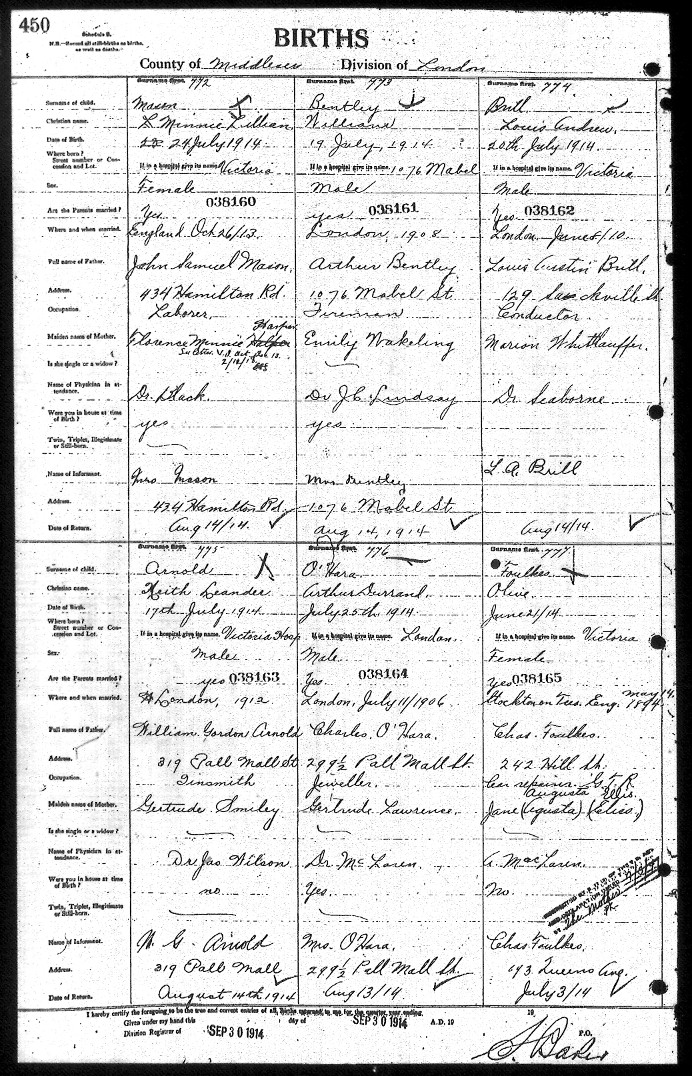 450
Schedule B.
N.B.—Record all still-births as births, as well as deaths.
BIRTHS
County of Middlesex Division of London
Surname first. 772 Surname first. 773 Surname first. 774
Surname of child. Mason Bentley Brill
Christian name. Minnie Lillian William Louis Andrew.
Date of Birth. 24 July 1914 19 July, 1914 ? 20th July 1914.
Where born?
Street number or Concession and Lot. If in a hospital give its name. Victoria If in a hospital give its name. 1076 Mabel If in a hospital give its name. Victoria
Sex. Female Male Male
038160 038161 038162
Are the Parents married? Yes yes Yes
Where and when married. England Oct 26/13. London, 1908 London June 8/10
Full name of Father. John Samuel Mason, Arthur Bentley Louis Austin Brill.
Address. 434 Hamilton Rd. 1076 Mabel St. 129 Sackville St
Occupation. Laborer, Fireman Conductor
Harper
Maiden name of Mother. Florence Minnie Emily Wakeling Marion Whithauffer.
Is she single or a widow?
Name of Physician in attendance. Dr. Black Dr J C Lindsay Dr Seaborne
Were you in house at time of Birth? yes yes
Twin, Triplet, Illegitimate or Still-born.
Name of Informant. Mrs Mason Mrs Bentley L. A. Brill
Address. 434 Hamilton Rd. 1076 Mabel St
Date of Return. Aug 14/14. Aug 14, 1914 Aug 14/14.
Surname first. 775 Surname first. 776 Surname first. 777
Surname of child. Arnold O'Hara Foulkes
Christian name. Keith Leander Arthur Durrand Olive
Date of Birth. 17th July 1914. July 25th 1914. June 21/14
Where born?
Street number or Concession and Lot. If in a hospital give its name. Victoria Hosp If in a hospital give its name. London. If in a hospital give its name. Victoria
Sex. Male Male Female
Are the Parents married? yes 038163 Yes 038164 yes 038165
Where and when married. London, 1912 London, July 11/1906 Stockton on Tees. Eng. May 14. 1894
Full name of Father. William Gordon Arnold Charles O'Hara. Chas. Foulkes.
Address. 319 Pall Mall St 299½ Pall Mall St. 242 Hill St.
Occupation. Tinsmith Jeweller. Car repairer
Augusta Ellis.
Maiden name of Mother. Gertrude Smiley Gertrude Lawrence. Jane
Is she single or a widow?
Name of Physician in attendance. Dr Jas Wilson Dr. McLaren. A. MacLaren
Were you in house at time of Birth? no Yes. No.
Twin, Triplet, Illegitimate or Still-born.
The Mother
Name of Informant. W. G. Arnold Mrs. O'Hara. Chas Foulkes.
Address. 319 Pall Mall 299½ Pall Mall St. Queens Ave.
Date of Return. August 14th 1914 Aug 13/14 July 3/14
I hereby certify the foregoing to be the true and correct entries of all Births returned to me for the quarter year ending
Given under my hand this SEP 30 1914 day of SEP 30 1914 A.D. 19
Division Registrar of P.O.
Baker